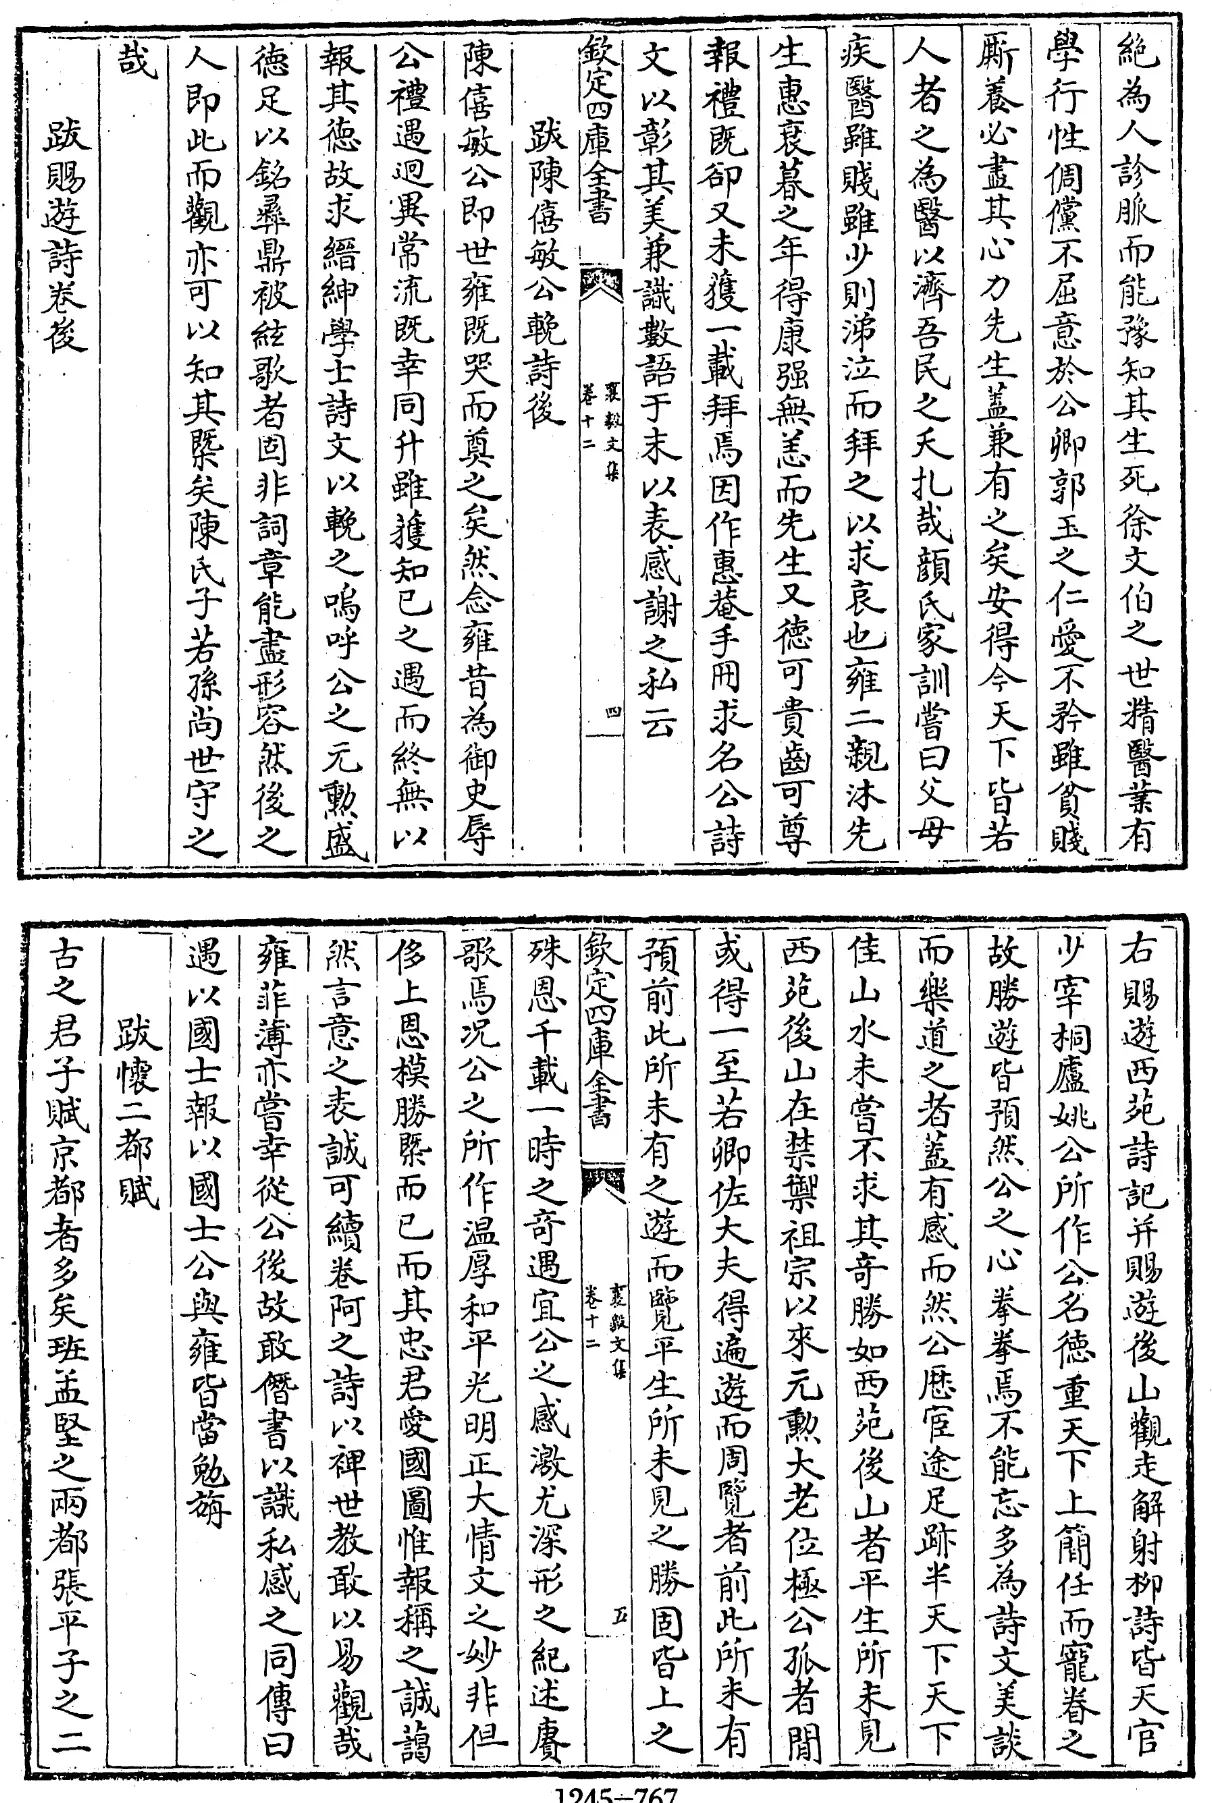 絶為人診脈而能豫知其生死徐文伯之世精醫業有
學行性倜儻不屈意於公卿郭玉之仁愛不矜雖貧賤
厮養必盡其心力先生蓋兼有之矣安得今天下皆若
人者之為醫以濟吾民之夭扎哉顔氏家訓嘗曰父母
疾醫雖賤雖少則涕泣而拜之以求哀也雍二親沐先
生惠衰暮之年得康强無恙而先生又德可貴齒可尊
報禮既卻又未獲一載拜焉因作惠菴手冊求名公詩
文以彰其美兼識數語于末以表感謝之私云
欽定四庫全書
襄毅文集
卷十二
四
跋陳僖敏公輓詩後
陳僖敏公即世雍既哭而奠之矣然念雍昔為御史辱
公禮遇迥異常流既幸同升雖獲知已之遇而終無以
報其德故求縉紳學士詩文以輓之嗚呼公之元勲盛
德足以銘彞鼎被絃歌者固非詞章能盡形容然後之
人即此而觀亦可以知其槩矣陳氏子若孫尚世守之
哉
跋賜遊詩卷後
右賜遊西苑詩記并賜遊後山觀走解射柳詩皆天官
少宰桐廬姚公所作公名德重天下上簡任而寵眷之
故勝遊皆預然公之心拳拳焉不能忘多為詩文美談
而樂道之者蓋有感而然公歴宦途足跡半天下天下
佳山水未嘗不求其奇勝如西苑後山者平生所未見
西苑後山在禁禦祖宗以來元勲大老位極公孤者間
或得一至若卿佐大夫得遍遊而周覽者前此所未有
預前此所未有之遊而覽平生所未見之勝固皆上之
欽定四庫全書
襄毅文集
卷十二
五
殊恩千載一時之奇遇宜公之感激尤深形之紀述賡
歌焉况公之所作温厚和平光明正大情文之妙非但
侈上恩模勝槩而已而其忠君愛國圖惟報稱之誠藹
然言意之表誠可續卷阿之詩以裨世教敢以易觀哉
雍菲薄亦嘗幸從公後故敢僭書以識私感之同傳曰
遇以國士報以國士公與雍皆當勉旃
跋懷二都賦
古之君子賦京都者多矣班孟堅之兩都張平子之二
1245-767